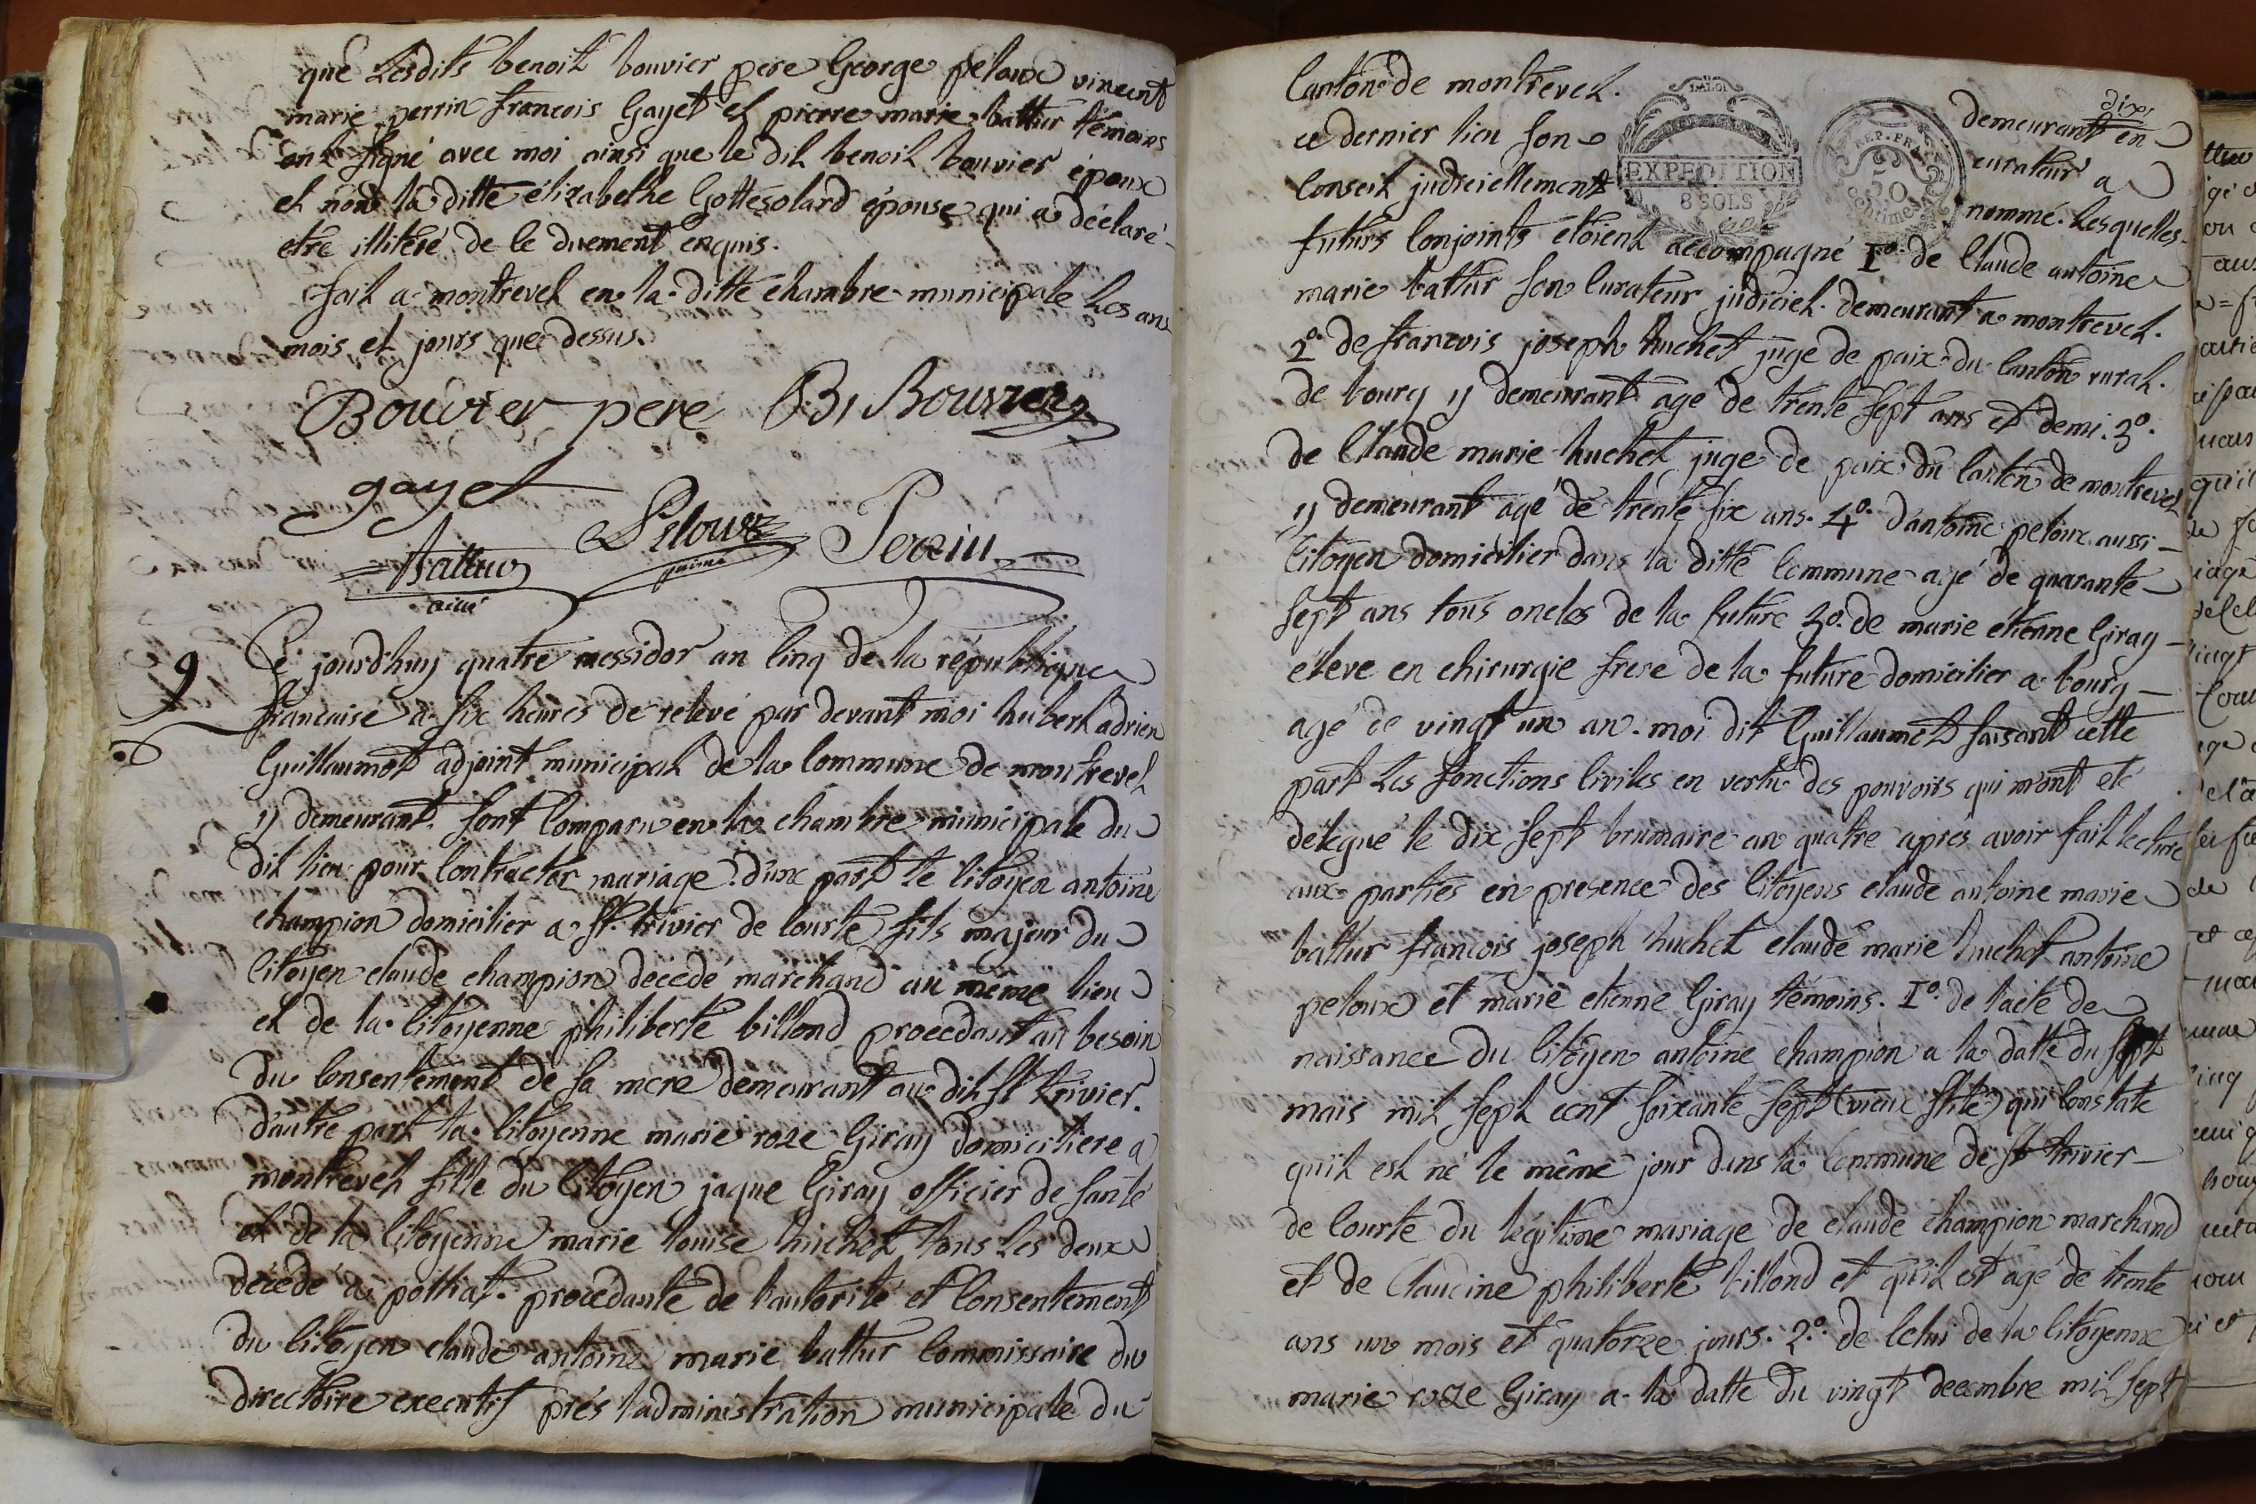 que Lesdits benoit bouvier pere George peloux vincent
marie perrin francois Gayet et pierre marie battur témoins
ont signé avec moi ainsi que le dit benoit bouvier époux
et non la ditte élizabethe Gottesolard épouse qui a déclaré
etre illiteré de le duement enquis.
fait a montrevel en la ditte chambre municipale Les an
mois et jours que dessus.
Bouvier pere B, Bouvier
gayet
Battur Peloux Perrin
ainé
9 Ce jourdhuy quatre messidor an Cinq de la république
francaise a six heures de relevé par devant moi hubert adrien
Guillaumot adjoint municipal de la Commune de montrevel
y demeurant. sont Comparu en la chambre municipale du
dit lieu pour Contracter mariage. d'une part le Citoyen antoine
champion domicilier a st. trivier de Courte fils majeur du
Citoyen claude champion décédé marchand au même lieu
et de la Citoyenne philiberte billond procedant au besoin
du Consentement de sa mere demeurant au dit st trivier.
d'autre part la Citoyenne marie roze Giray domiciliere a
montrevel fille du Citoyen jaque Giray officier de santé
et de la Citoyenne marie louise huchet tous les deux
décedé a polliat. procédante de l'autorité et Consentement
du Citoyen claude antoine marie battur Commissaire du
directoire executif prés l'administration municipale du
dix
Canton de montrevel. demeurant en
ce dernier lieu son curateur a
Conseil judiciellement nommé. Lesquelles
LA LOI
EXPEDITION
8 SOLS
REP. FRA.
50
Centimes
futurs Conjoints étoient accompagné 1º. de Claude antoine
marie battur son Curateur judiciel. demeurant a montrevel.
2º. de francois joseph huchet juge de paix du Canton rural.
de bourg y demeurant age de trente sept ans et demi. 3º.
de Claude marie huchet juge de paix du Canton de montrevel
y demeurant agé de trente six ans. 4º. d'antoine peloux aussi
Citoyen domicilier dans la ditte Commune agé de quarante
sept ans tous oncles de la future 3º. de marie étienne Giray
éleve en chirurgie frere de la future domicilier a bourg
agé de vingt un an. moi dit Guillaumot faisant cette
part Les fonctions Civiles en vertu des pouvoirs qui m'ont eté
délegué le dix sept brumaire an quatre aprés avoir fait lecture
aux parties en presence des Citoyens claude antoine marie
battur francois joseph huchet claude marie huchet antoine
peloux et marie etienne Giray témoins. 1º. de l'acte de
naissance du Citoyen antoine champion a la datte du sept
mais mil sept cent soixante sept (vieux stile) qui Constate
quil est né le même jour dans la Commune de st trivier
de Courte du légitime mariage de claude champion marchand
et de Claudine philiberte billond et qu'il est agé de trente
ans un mois et quatorze jours. 2º. de Celui de la Citoyenne
marie roze Giray a la datte du vingt decembre mil sept